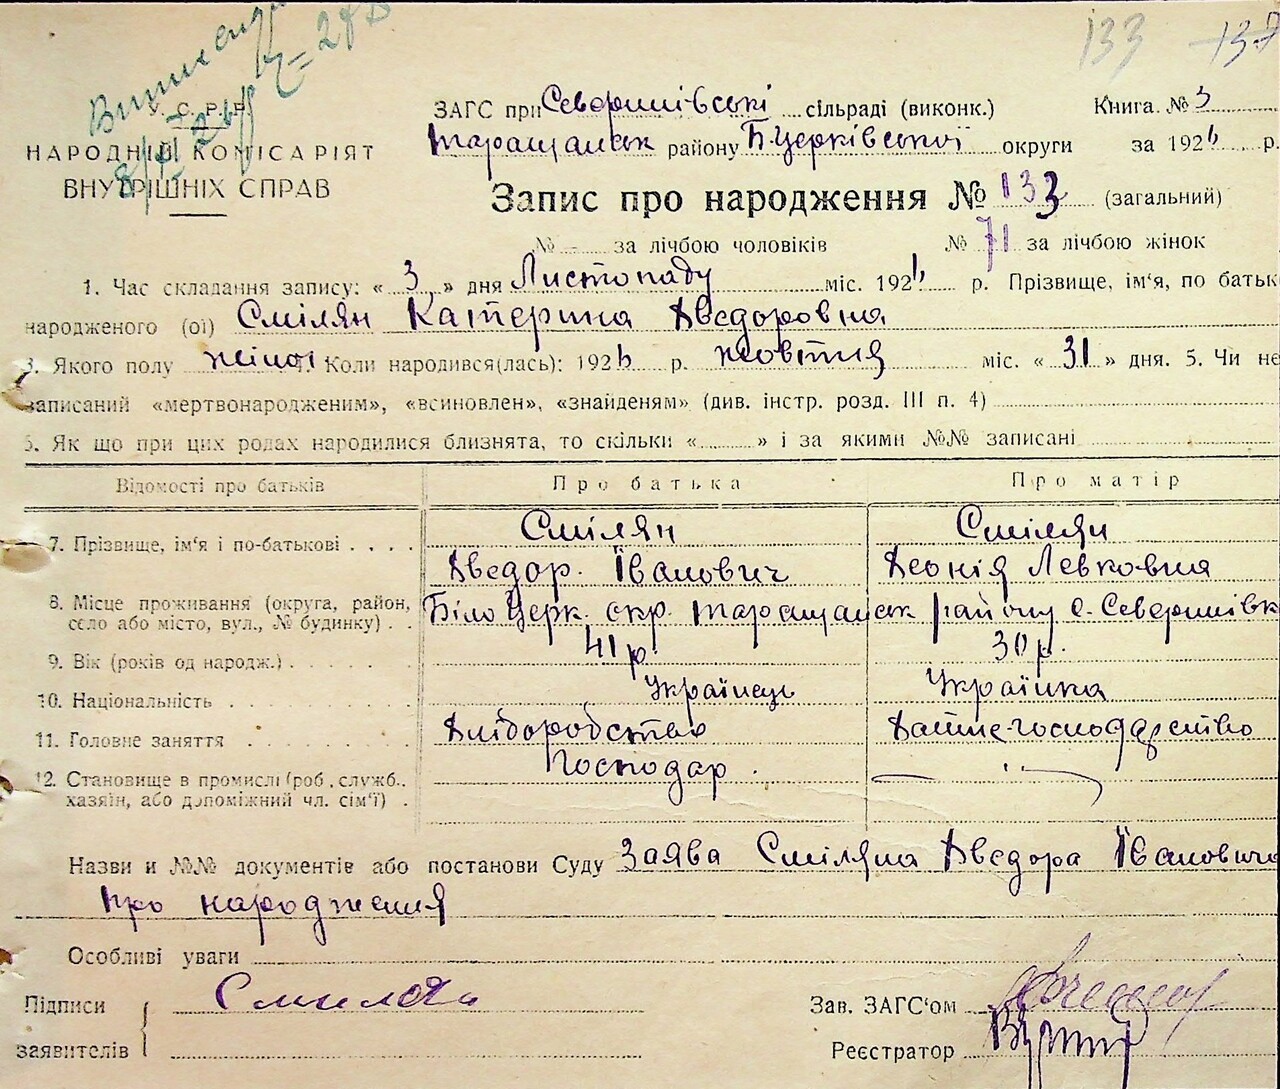 133 137
У.С.Р.Р.
НАРОДНІЙ КОМІСАРІЯТ
ВНУТРІШНІХ СПРАВ
ЗАГС при Северинівські сільраді (виконк.) Книга № 3
Таращанськ району Б.Церківської округи за 1926 р.
Запис про народження № 133 (загальний)
№ - за лічбою чоловіків № 71 за лічбою жінок
1. Час складання запису: « 3 » дня Листопаду міс. 1926 р. Прізвище, ім'я, по батьк
народженого (ої) Смілян Катерина Хведоровна
3. Якого полу жіноч Коли народився(лась): 1926 р. жовтня міс. « 31 » дня. 5. Чи не
записаний «мертвонародженим», «всиновлен», «знайденям» (див. інстр. розд. III п. 4)
6. Як що при цих родах народилися близнята, то скільки « » і за якими №№ записані
Відомості про батьків Про батька Про матір
7. Прізвище, ім'я і по-батькові Смілян Смілян
Хведор Іванович Хеонія Левковна
8. Місце проживання (округа, район, село або місто, вул., № будинку) Біло Церк. окр. Таращанськ району с. Северинівк
9. Вік (років од народж.) 41 р 30 р.
10. Національність Українець Українка
11. Головне заняття Хліборобство Хатнє-господарство
12. Становище в промислі (роб., службʼ., хазяїн, або допоміжний чл. сім'ї) Господар
Назви и №№ документів або постанови Суду Заява Сміляна Хведора Івановича
про народження
Особливі уваги
Підписи заявителів Смилян
Зав. ЗАГС'ом
Реєстратор